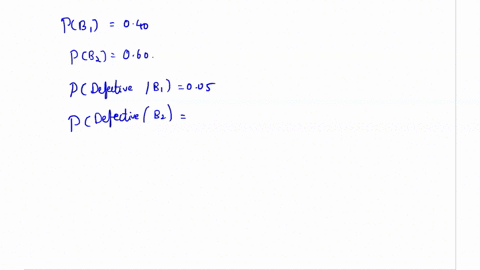 P(B₁) = 0.40
P(B₂) = 0.60.
P(Defective /B₁) = 0.05
P(Defective/B₂) =